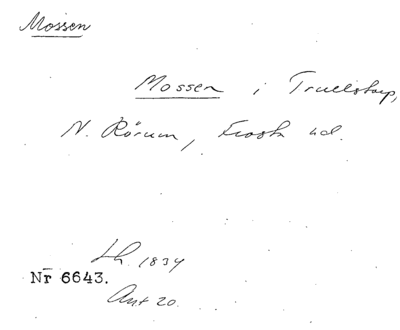 Mossen
Mossen i Trulstorp,
N. Rörum, Frosta hd.
Lh. 1834
Nr 6643.
Ant 20.